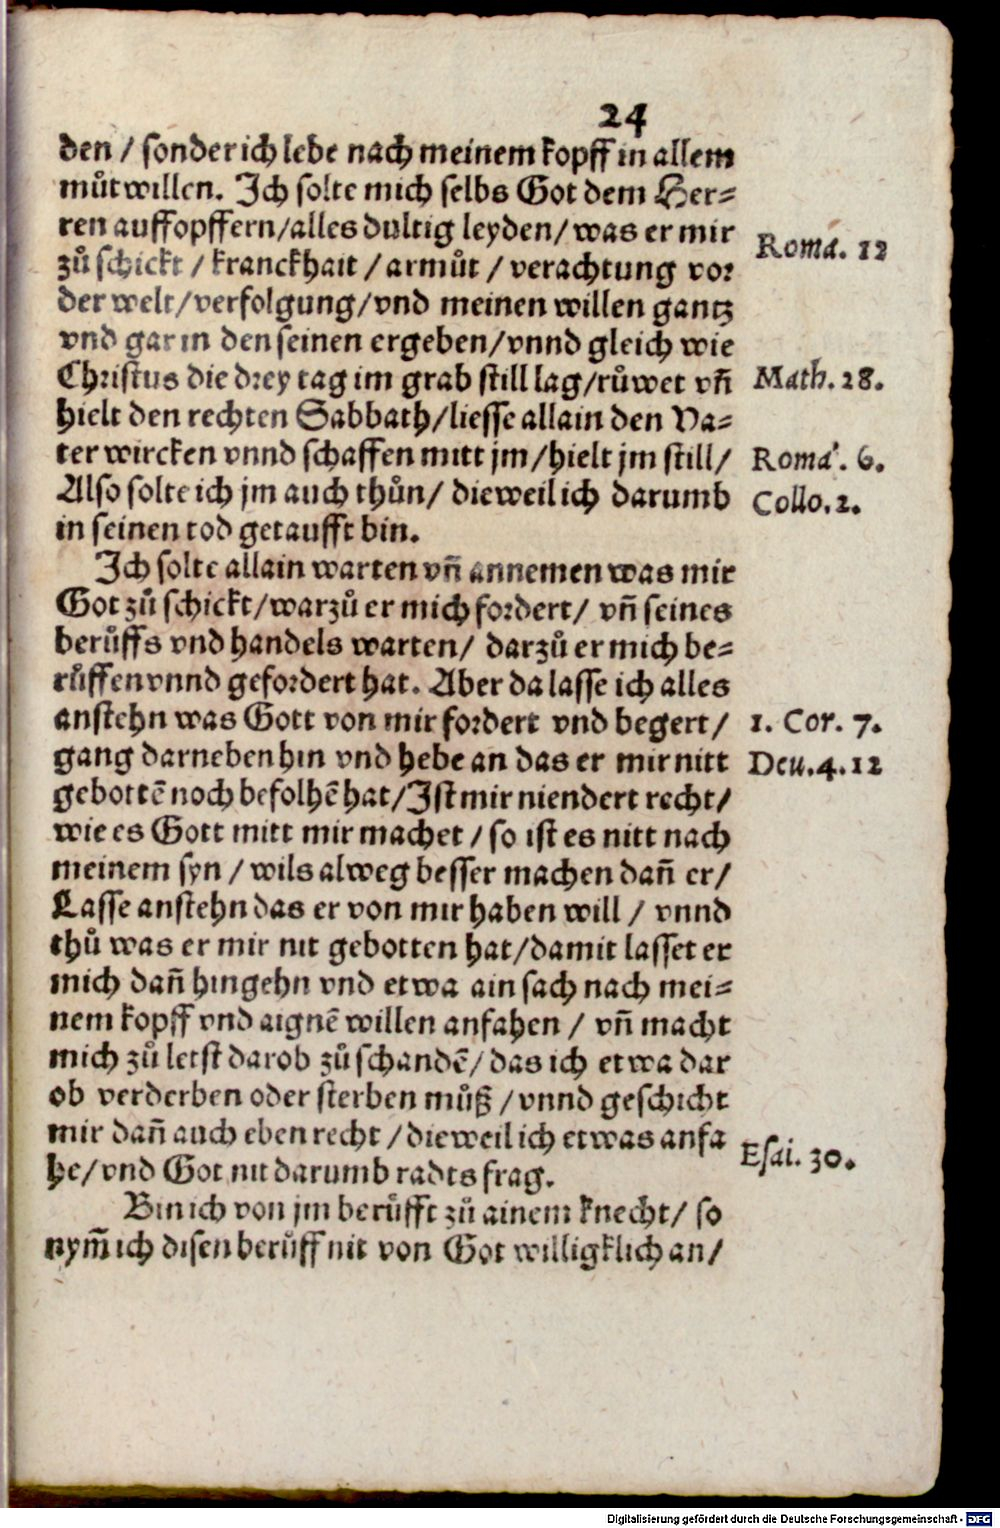 24
den / sonder ich lebe nach meinem kopff in allem
můtwillen. Ich solte mich selbs Got dem Her⸗
ren auffopffern/alles dultig leyden/was er mir
Romā. 12
zů schickt / kranckhait / armůt / verachtung vor
der welt/verfolgung/vnd meinen willen gantz
vnd gar in den seinen ergeben/vnnd gleich wie
Christus die drey tag im grab still lag/růwet vn̄
Math. 28.
hielt den rechten Sabbath/liesse allain den Va⸗
ter wircken vnnd schaffen mitt jm/hielt jm still/
Romā. 6.
Also solte ich jm auch thůn/ dieweil ich darumb
Collo. 2.
in seinen tod getaufft bin.
Ich solte allain warten vn̄ annemen was mir
Got zů schickt/warzů er mich fordert/ vn̄ seines
berůffs vnd handels warten/ darzů er mich be⸗
růffen vnnd gefordert hat. Aber da lasse ich alles
anstehn was Gott von mir fordert vnd begert/
1. Cor. 7.
gang darneben hin vnd hebe an das er mir nitt
Deu. 4. 12
gebottē noch befolhē hat/Ist mir niendert recht/
wie es Gott mitt mir machet / so ist es nitt nach
meinem syn / wils alweg besser machen dan̄ er/
Lasse anstehn das er von mir haben will / vnnd
thů was er mir nit gebotten hat/damit lasset er
mich dan̄ hingehn vnd etwa ain sach nach mei⸗
nem kopff vnd aignē willen anfahen / vn̄ macht
mich zů letst darob zů schandē/das ich etwa dar
ob verderben oder sterben můß / vnnd geschicht
mir dan̄ auch eben recht / dieweil ich etwas anfa
Esai. 30.
he/vnd Got nit darumb radts frag.
Bin ich von jm berůfft zů ainem knecht/ so
nym̄ ich disen berůff nit von Got willigklich an/
Digitalisierung gefördert durch die Deutsche Forschungsgemeinschaft - DFG